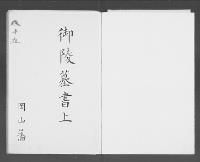 御陵墓書上
岡山藩